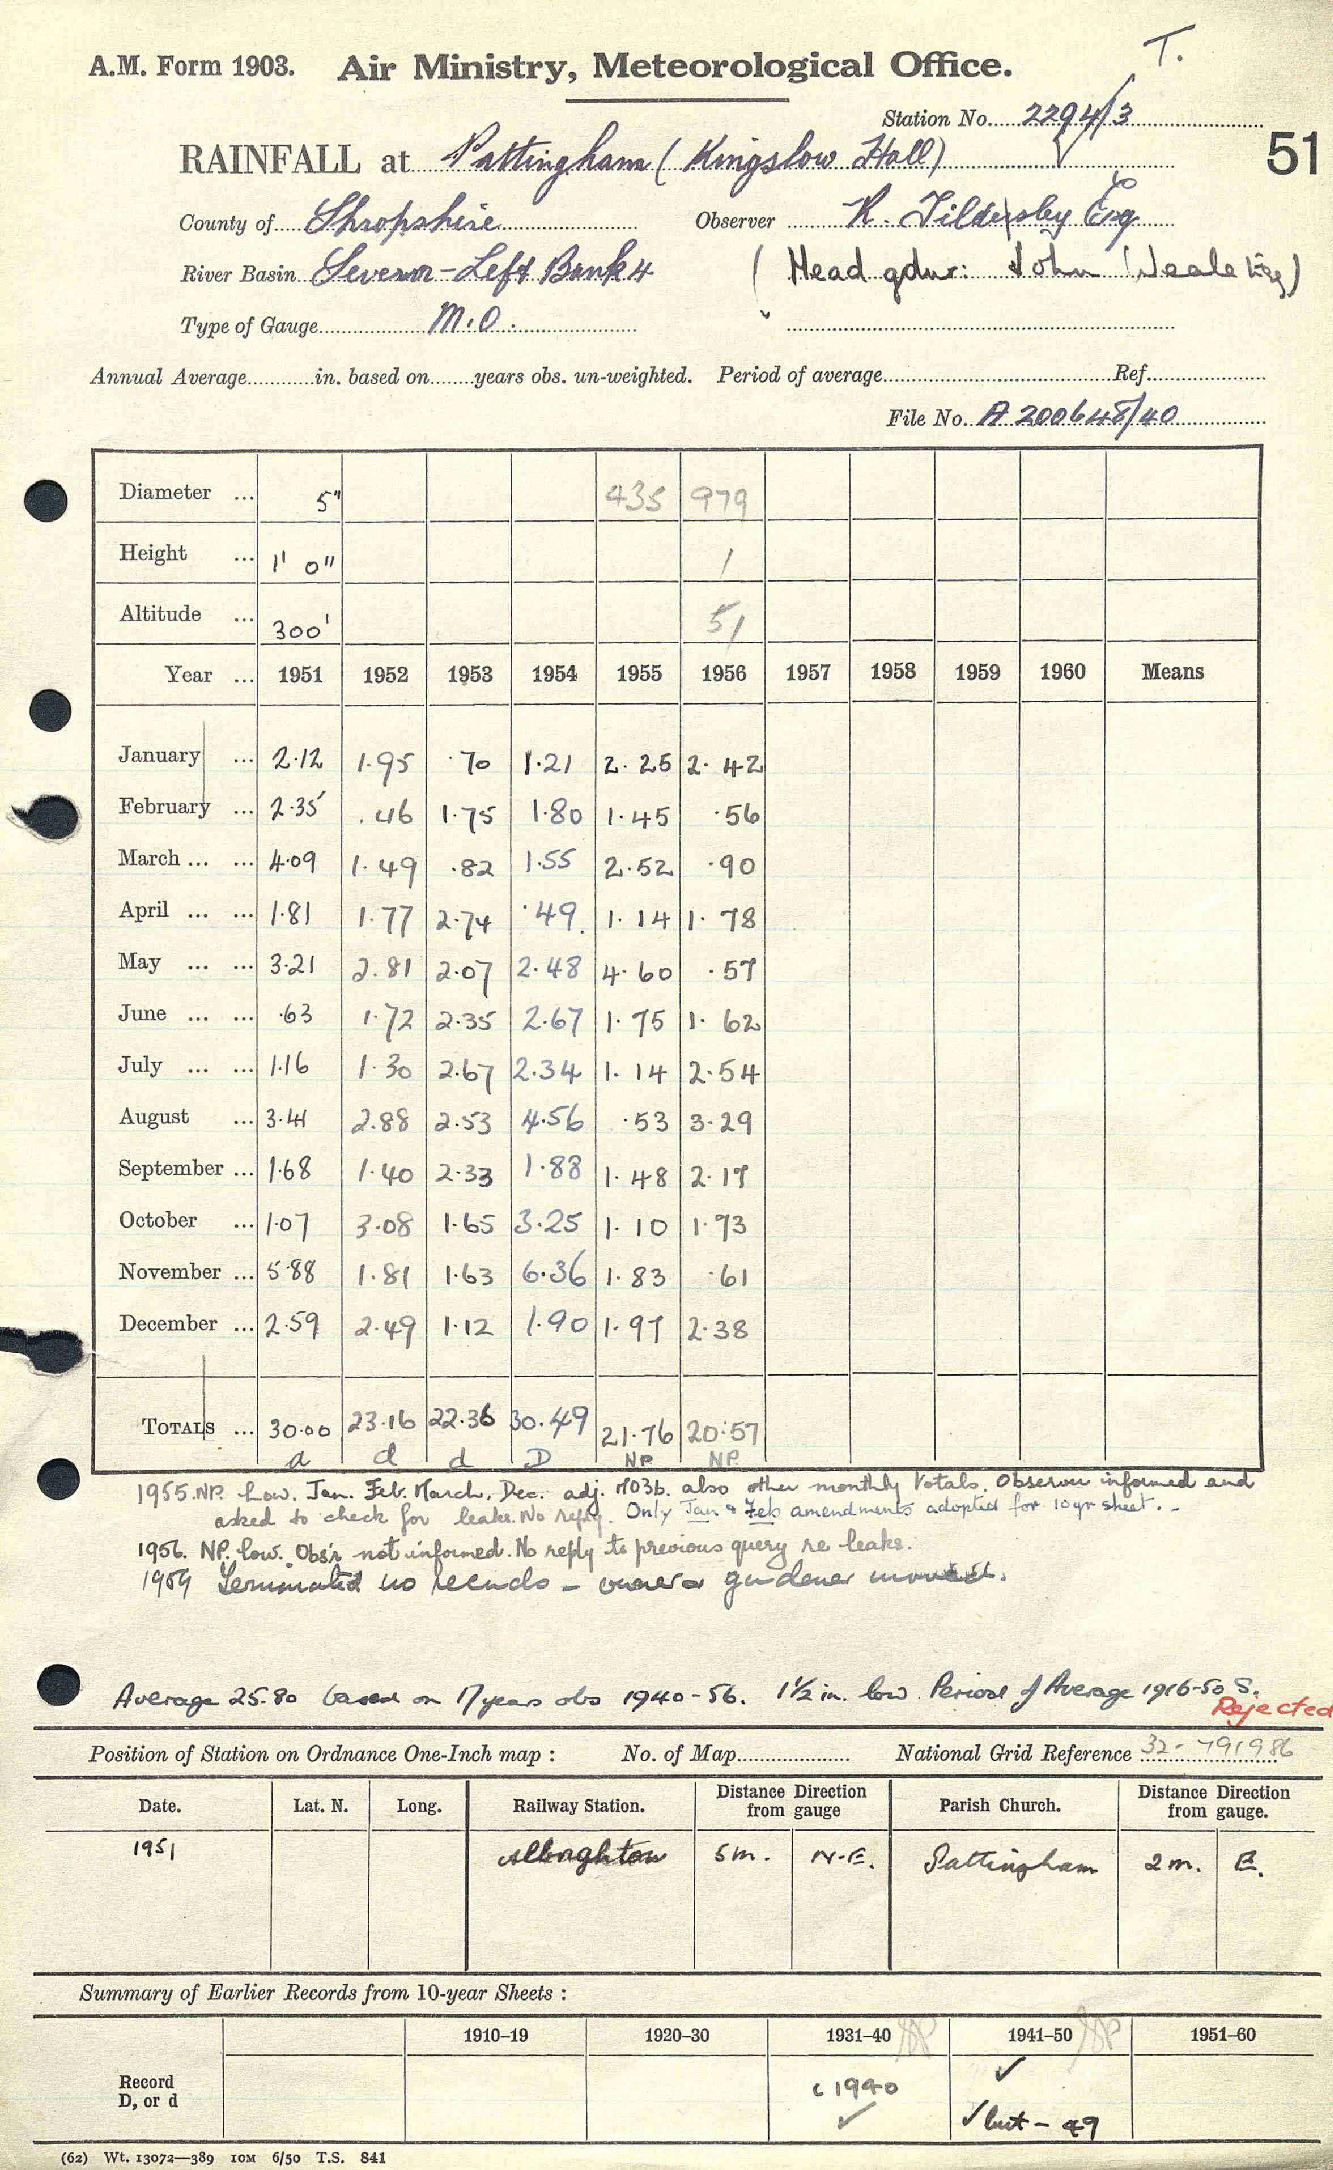 T.
A.M. Form 1903. Air Ministry, Meteorological Office.
Station No. 2294/3
51
RAINFALL at Pattingham (Kingslow Hall)
County of Shropshire Observer R. Tildesley Esq
River Basin Severn - Left Bank 4 (Head gdnr: John Neale Esq)
Type of Gauge M.O.
Annual Average in. based on years obs. un-weighted. Period of average Ref.
File No. A 200648/40
Diameter ... 5" 435 979
Height ... 1' 0" 1
Altitude ... 300' 51
Year ... 1951 1952 1953 1954 1955 1956 1957 1958 1959 1960 Means
January ... 2.12 1.95 .70 1.21 2.25 2.42
February ... 2.35 .46 1.75 1.80 1.45 .56
March ... ... 4.09 1.49 .82 1.55 2.52 .90
April ... ... 1.81 1.77 2.74 .49 1.14 1.78
May ... ... 3.21 2.81 2.07 2.48 4.60 .57
June ... ... .63 1.72 2.35 2.67 1.75 1.62
July ... ... 1.16 1.30 2.67 2.34 1.14 2.54
August ... 3.41 2.88 2.53 4.56 .53 3.29
September ... 1.68 1.40 2.33 1.88 1.48 2.17
October ... 1.07 3.08 1.65 3.25 1.10 1.73
November ... 5.88 1.81 1.63 6.36 1.83 .61
December ... 2.59 2.49 1.12 1.90 1.97 2.38
TOTALS ... 30.00 23.16 22.36 30.49 21.76 20.57
d d d D NP. NP.
1955. NP. Low. Jan. Feb. March, Dec. adj. M03b. also other monthly totals. Observer informed and
asked to check for leaks. No reply. Only Jan & Feb amendments adopted for 10 yr sheet. -
1956. NP. low. Obs'r not informed. No reply to previous query re leaks.
1959 Terminated no records - owner & gardener moved.
Average 25.80 based on 17 years obs 1940-56. 1½ in. low. Period of Average 1916-50 S.
Rejected
Position of Station on Ordnance One-Inch map : No. of Map National Grid Reference 32- 791986
Date. Lat. N. Long. Railway Station. Distance from gauge Direction Parish Church. Distance from gauge. Direction
1951 Albrighton 5m. N.E. Pattingham 2m. E.
Summary of Earlier Records from 10-year Sheets :
1910–19 1920–30 1931–40 1941–50 1951–60
Record D, or d c 1940 ✓ ✓ ✓ but - 49
(62) Wt. 13072—389 10M 6/50 T.S. 841